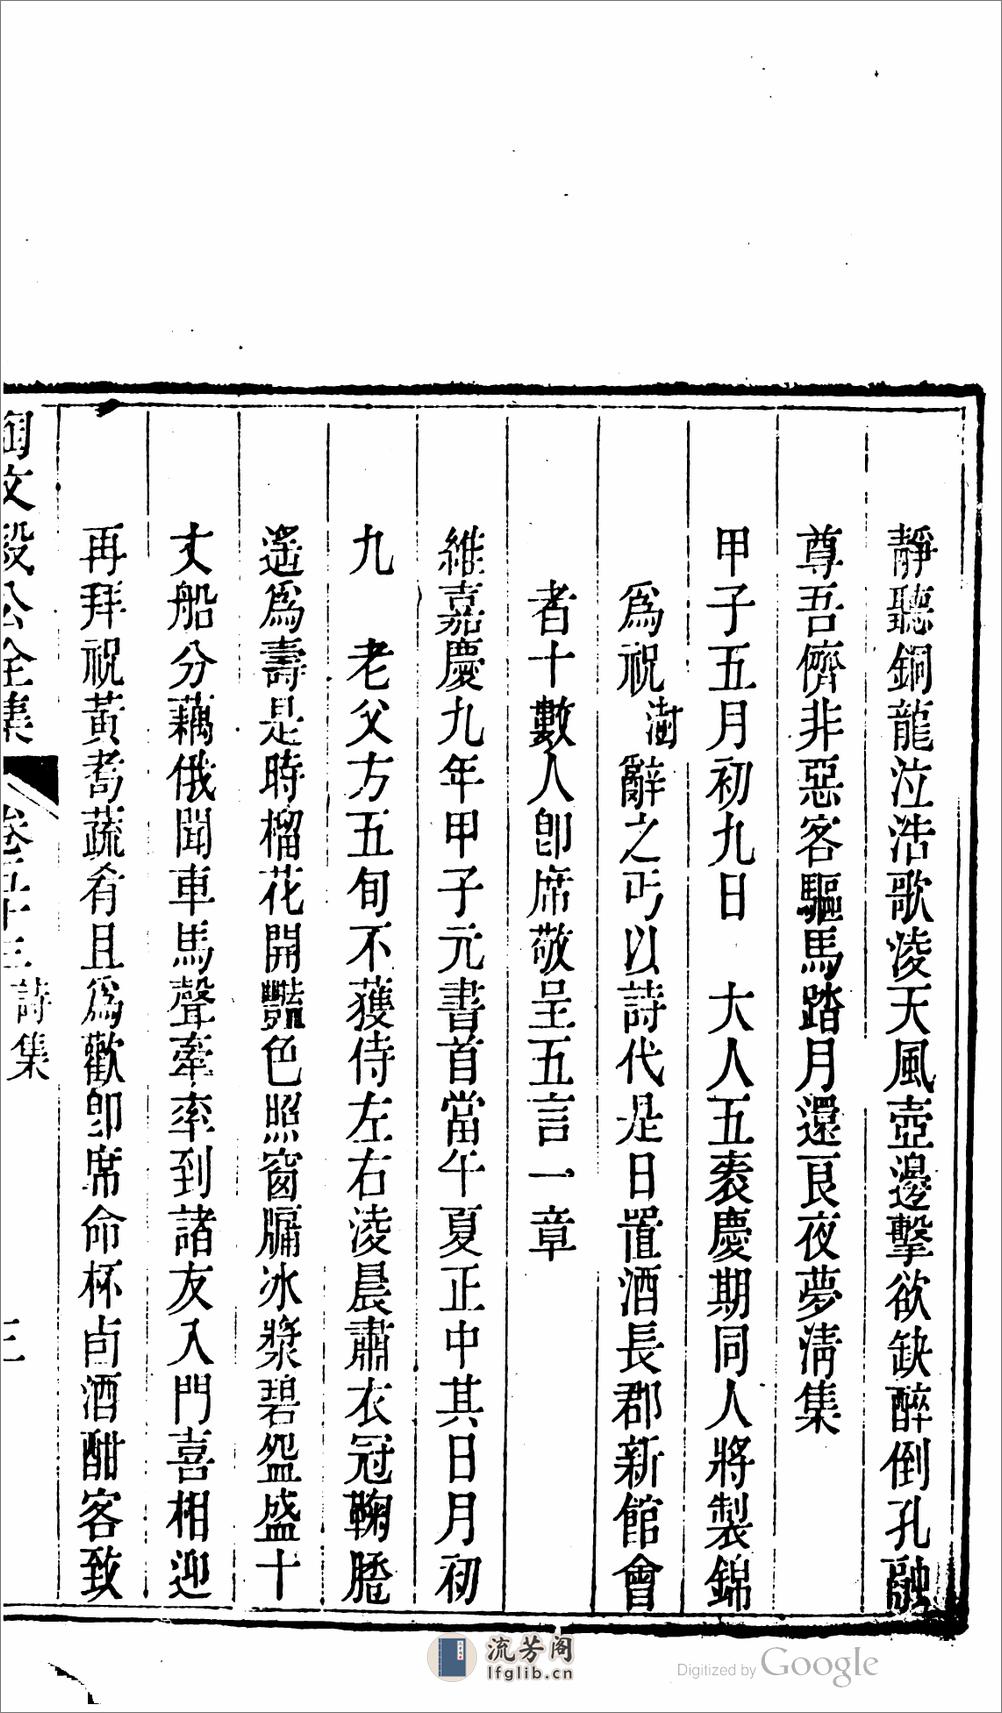 靜聽銅龍泣浩歌凌天風壺邊擊欲缺醉倒孔融
尊吾儕非惡客驅馬踏月還良夜夢淸集
甲子五月初九日　大人五袠慶期同人將製錦
爲祝澍辭之丐以詩代是日置酒長郡新館會
者十數人卽席敬呈五言一章
維嘉慶九年甲子元書首當午夏正中其日月初
九　老父方五旬不獲侍左右淩晨肅衣冠鞠𦜕
遙爲壽是時榴花開豔色照窗牖冰漿碧盌盛十
丈船分藕俄聞車馬聲牽率到諸友入門喜相迎
再拜祝黃耇蔬肴且爲歡卽席命杯卣酒酣客致
陶文毅公全集　卷五十三　詩集　三
流芳阁
lfglib.cn
Digitized by Google